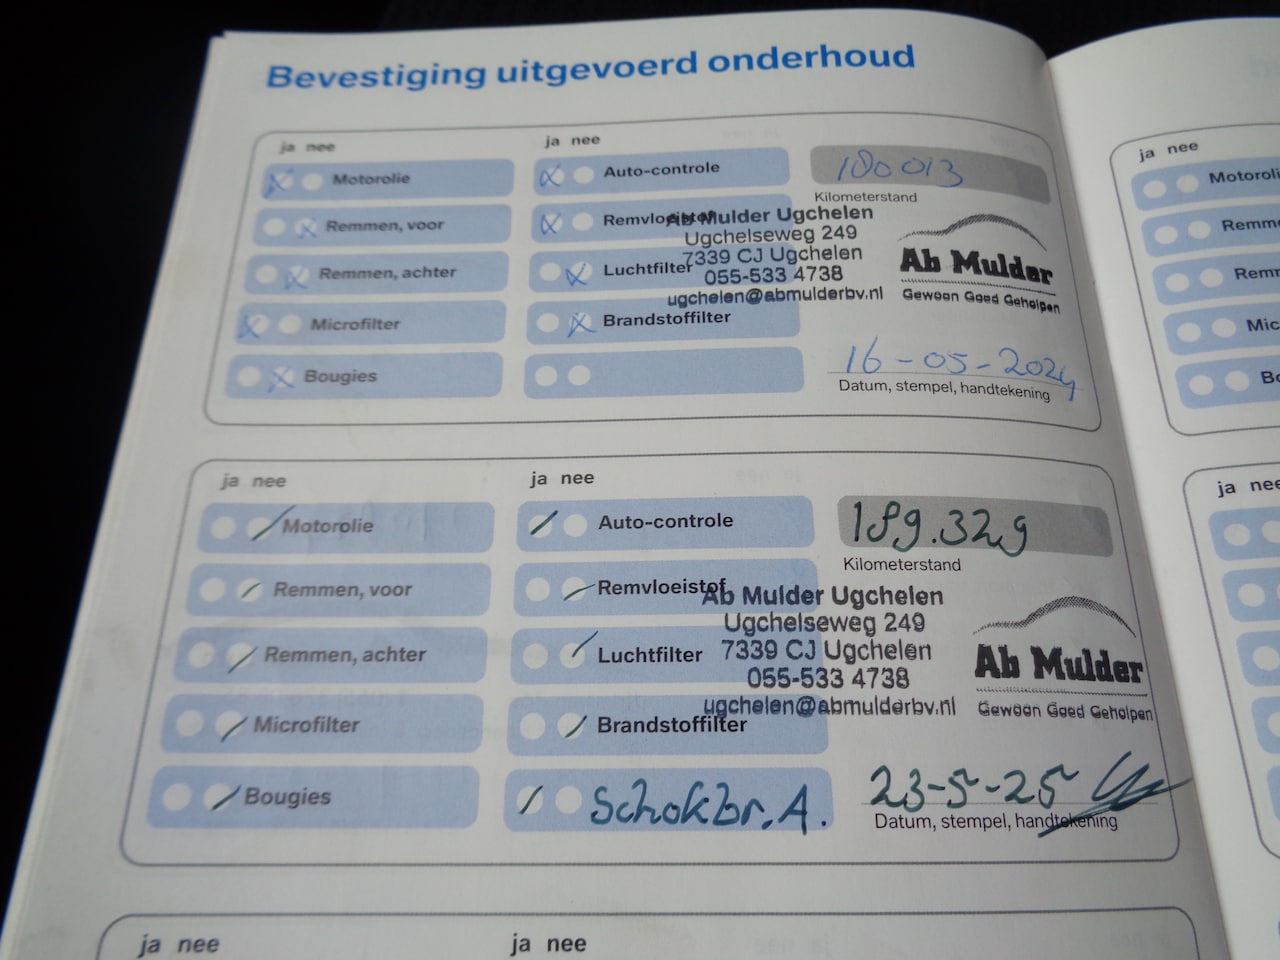 Bevestiging uitgevoerd onderhoud
ja nee
Motorolie
Remmen, voor
Remmen, achter
Microfilter
Bougies
ja nee
Auto-controle
Remvloeistof
Luchtfilter
Brandstoffilter
180013
Kilometerstand
Ab Mulder Ugchelen
Ugchelseweg 249
7339 CJ Ugchelen
055-533 4738
ugchelen@abmulderbv.nl
Ab Mulder
Gewoon Goed Geholpen
16-05-2024
Datum, stempel, handtekening
ja nee
Motorolie
Remmen, voor
Remmen, achter
Microfilter
Bougies
ja nee
Auto-controle
Remvloeistof
Luchtfilter
Brandstoffilter
Schokbr. A.
189.329
Kilometerstand
Ab Mulder Ugchelen
Ugchelseweg 249
7339 CJ Ugchelen
055-533 4738
ugchelen@abmulderbv.nl
Ab Mulder
Gewoon Goed Geholpen
23-5-25
Datum, stempel, handtekening
ja nee
ja nee
ja nee
Motoroli
Remm
Remr
Mic
Bo
ja nee